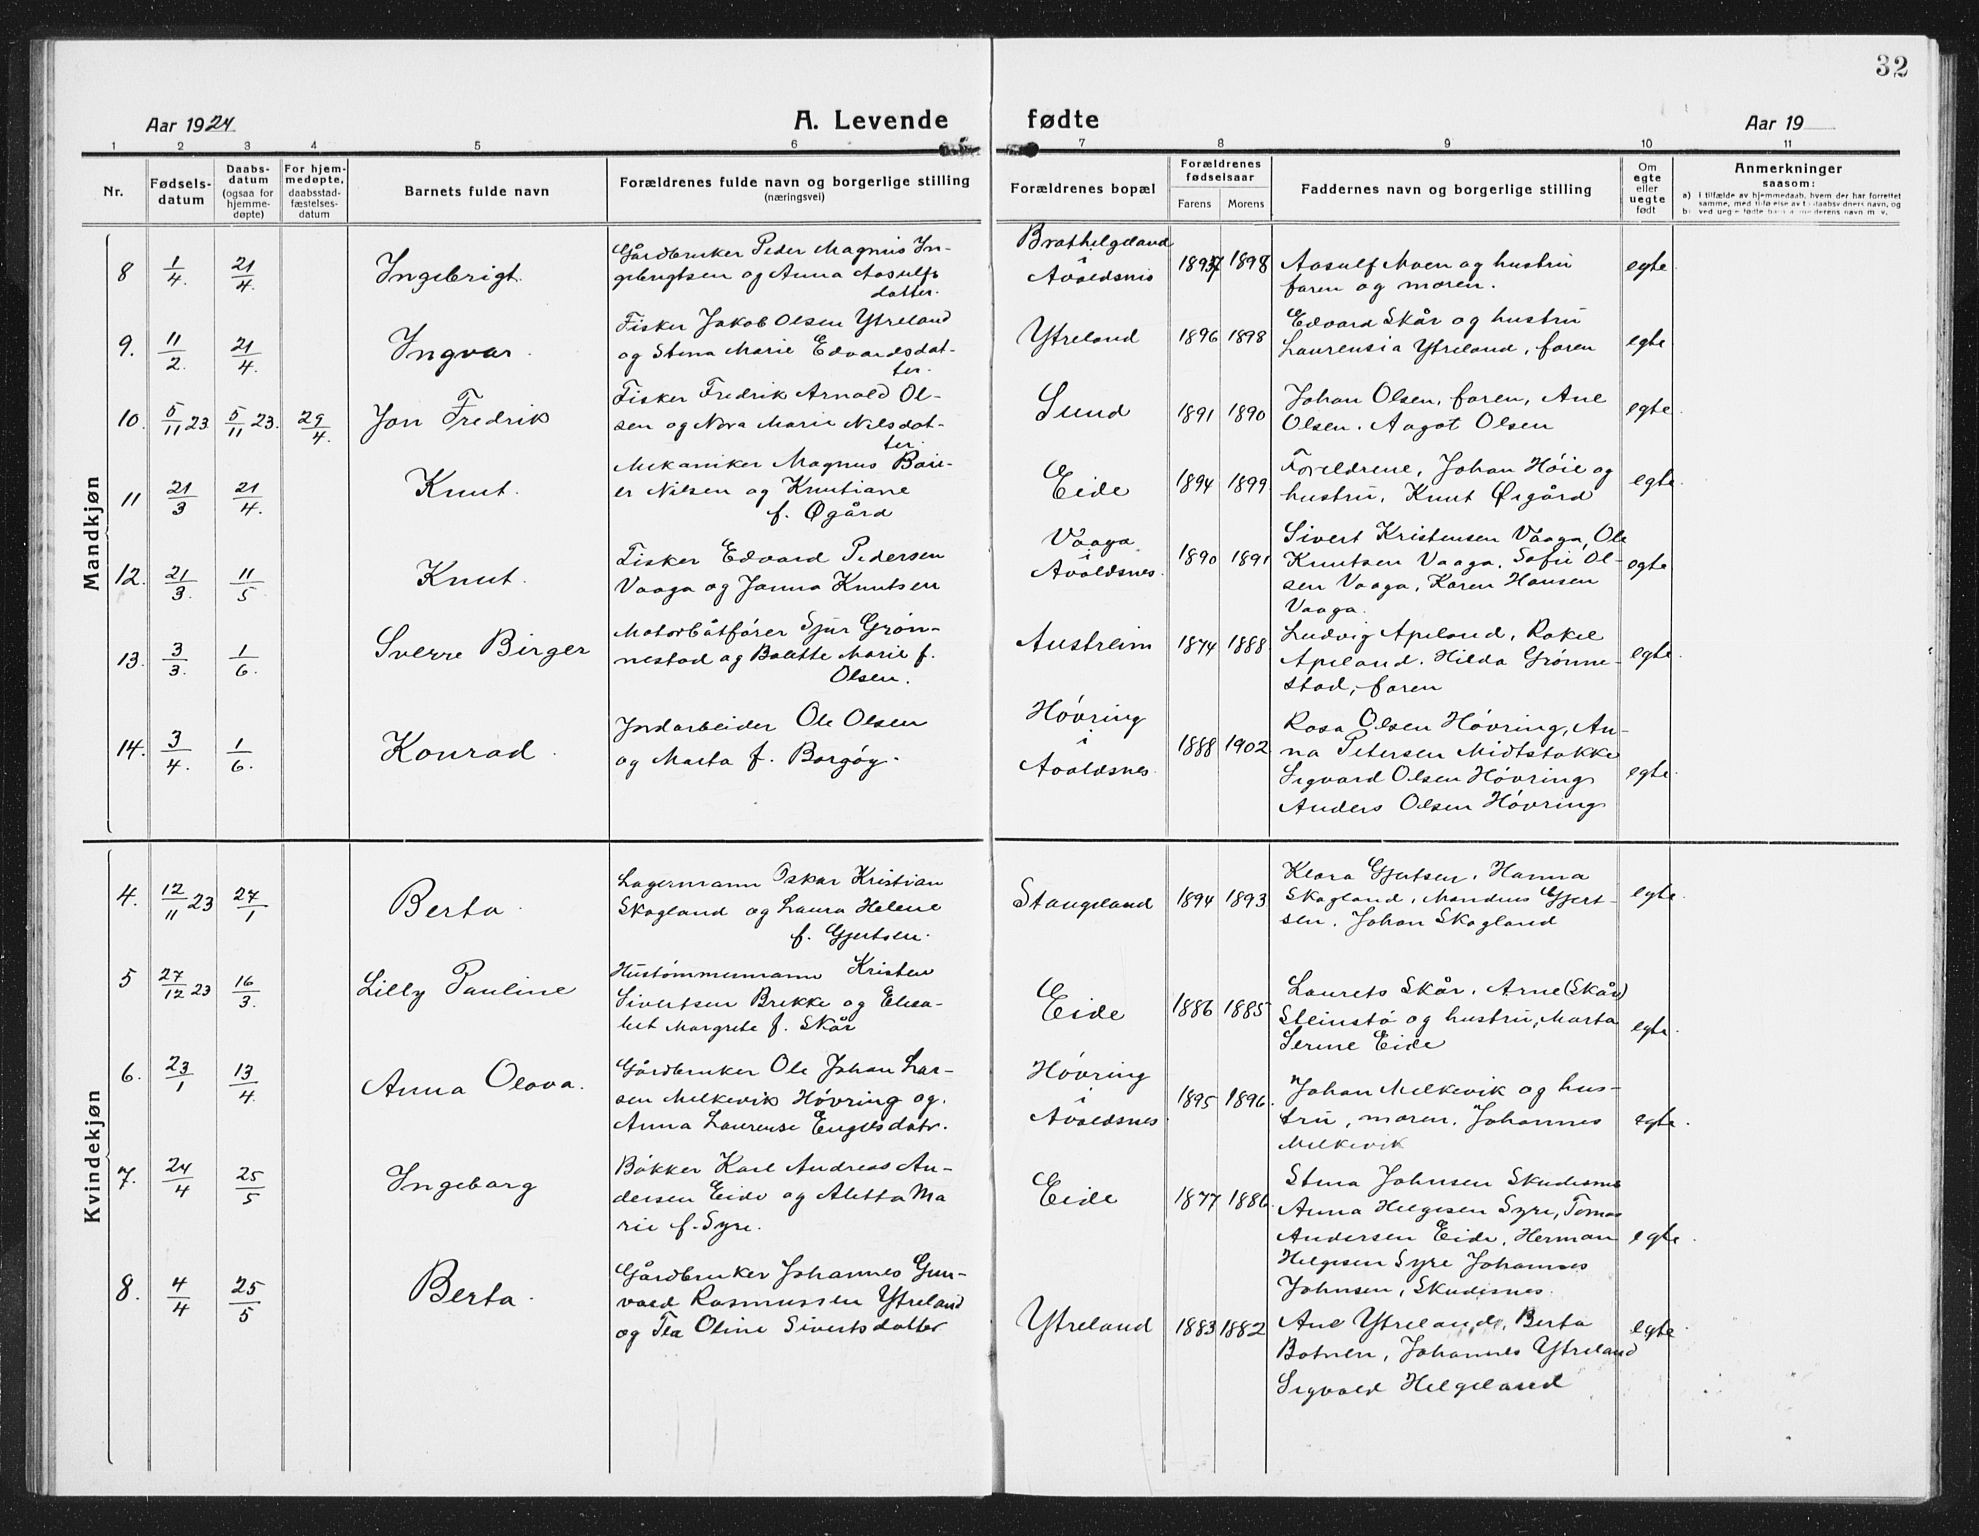 32
Aar 1924
A. Levende
fødte
Aar 19
1 2 3 4 5 6 7 8 9 10 11
Nr.
Fødsels-
datum
Daabs-
datum
(ogsaa for
hjemme-
døpte)
For hjem-
medøpte,
daabsstad-
fæstelses-
datum
Barnets fulde navn
Forældrenes fulde navn og borgerlige stilling
(næringsvei)
Forældrenes bopæl
Forældrenes
fødselsaar
Farens Morens
Faddernes navn og borgerlige stilling
Om
egte
eller
uegte
født
Anmerkninger
saasom:
a) i tilfælde av hjemmedaab, hvem der har forrettet
samme, med tilføielse av to daabsvidners navn, og
b) ved uegte fødte barn
Mandkjøn
8 1/4. 21/4. Ingebrigt
Gårdbruker Peder Magnus In-
gebrigtsen og Anna Aasulfs
datter.
Brathelgeland
i
Avaldsnes
1897 1898
Aasulf Moen og hustru
faren og moren.
egte
9. 11/2. 21/4. Ingvar.
Fisker Jakob Olsen Ytreland
og Stena Marie Edvardsdat-
ter.
Ytreland
1896 1898
Edvard Skår og hustru
Laurensia Ytreland, faren
egte
10. 5/11 23 5/11 23. 29/4. Jon Fredrik
Fisker Fredrik Arnold Ol-
sen og Nora Marie Nilsdat-
ter.
Sund
1891 1890
Johan Olsen, faren, Ane
Olsen. Aagot Olsen
egte.
11 21/3 21/4. Knut.
Mekaniker Magnus
er Nilsen og Knutiane
f. Øgård
Eide
1894 1899.
Foreldrene, Johan Høie og
hustru, Knut Øigård
egte.
12. 21/3. 11/5 Knut.
Fisker Edvard Pedersen
Vaaga og Janna Knutsen
Vaaga
i
Avaldsnes.
1890 1891
Sivert Kristensen Vaaga, Ole
Knutsen Vaaga, Sofie Ol-
sen Vaaga, Karen Hansen
Vaaga.
egte
13. 3/3. 1/6. Sverre Birger
Motorbåtfører Sjur Grøn-
nestad og Bolette Marie f.
Olsen.
Austreim
1874 1888
Ludvig Apeland, Rakel
Apeland. Hilda Grønne-
stad, faren
egte.
14. 3/4. 1/6. Konrad.
Jordarbeider Ole Olsen
og Marta f. Borgøy.
Høvring
i
Avaldsnes.
1888 1902
Rosa Olsen Høvring, An-
na Petersen Midtstokke
Sigvard Olsen Høvring
Anders Olsen Høvring
egte.
Kvindekjøn
4. 12/11 23 27/1 Berta.
Lagermann Oskar Kristian
Skogland og Laura Helene
f. Gjertsen.
Stangeland
1894 1893
Klara Gjertsen, Hanna
Skogland, Mandius Gjert-
sen, Johan Skogland
egte.
5 27/12 23 16/3. Lilly Pauline
Hustømmermann Kristen
Sivertsen Brekke og Elisa-
bet Margrete f. Skår
Eide
1886 1885
Laurets Skår, Arne (Skår)
Steinstø og hustru, Marta
Serine Eide
egte
6. 23/1 13/4. Anna Olava.
Gårdbruker Ole Johan Lar-
sen Melkevik Høvring og.
Anna Laurense Engelsdatr.
Høvring
i
Avaldsnes.
1895 1896.
Johan Melkevik og hus-
tru, moren. Johannes
Melkevik
egte.
7. 24/4 25/5 Ingeborg
Bøkker Karl Andreas An-
dersen Eide og Aletta Ma
rie f. Syre.
Eide
1877 1886.
Stina Johnsen Skudesnes
Anna Helgesen Syre, Tomas
Andersen Eide, Herman
Helgesen Syre Johannes
Johnsen, Skudesnes.
egte.
8. 4/4 25/5 Berta.
Gårdbruker Johannes Gun-
vald Rasmussen Ytreland
og Tea Oline Sivertsdatter
Ytreland
1883 1882
Ane Ytreland, Berta
Botnen, Johannes Ytreland
Sigvald Helgeland
egte.